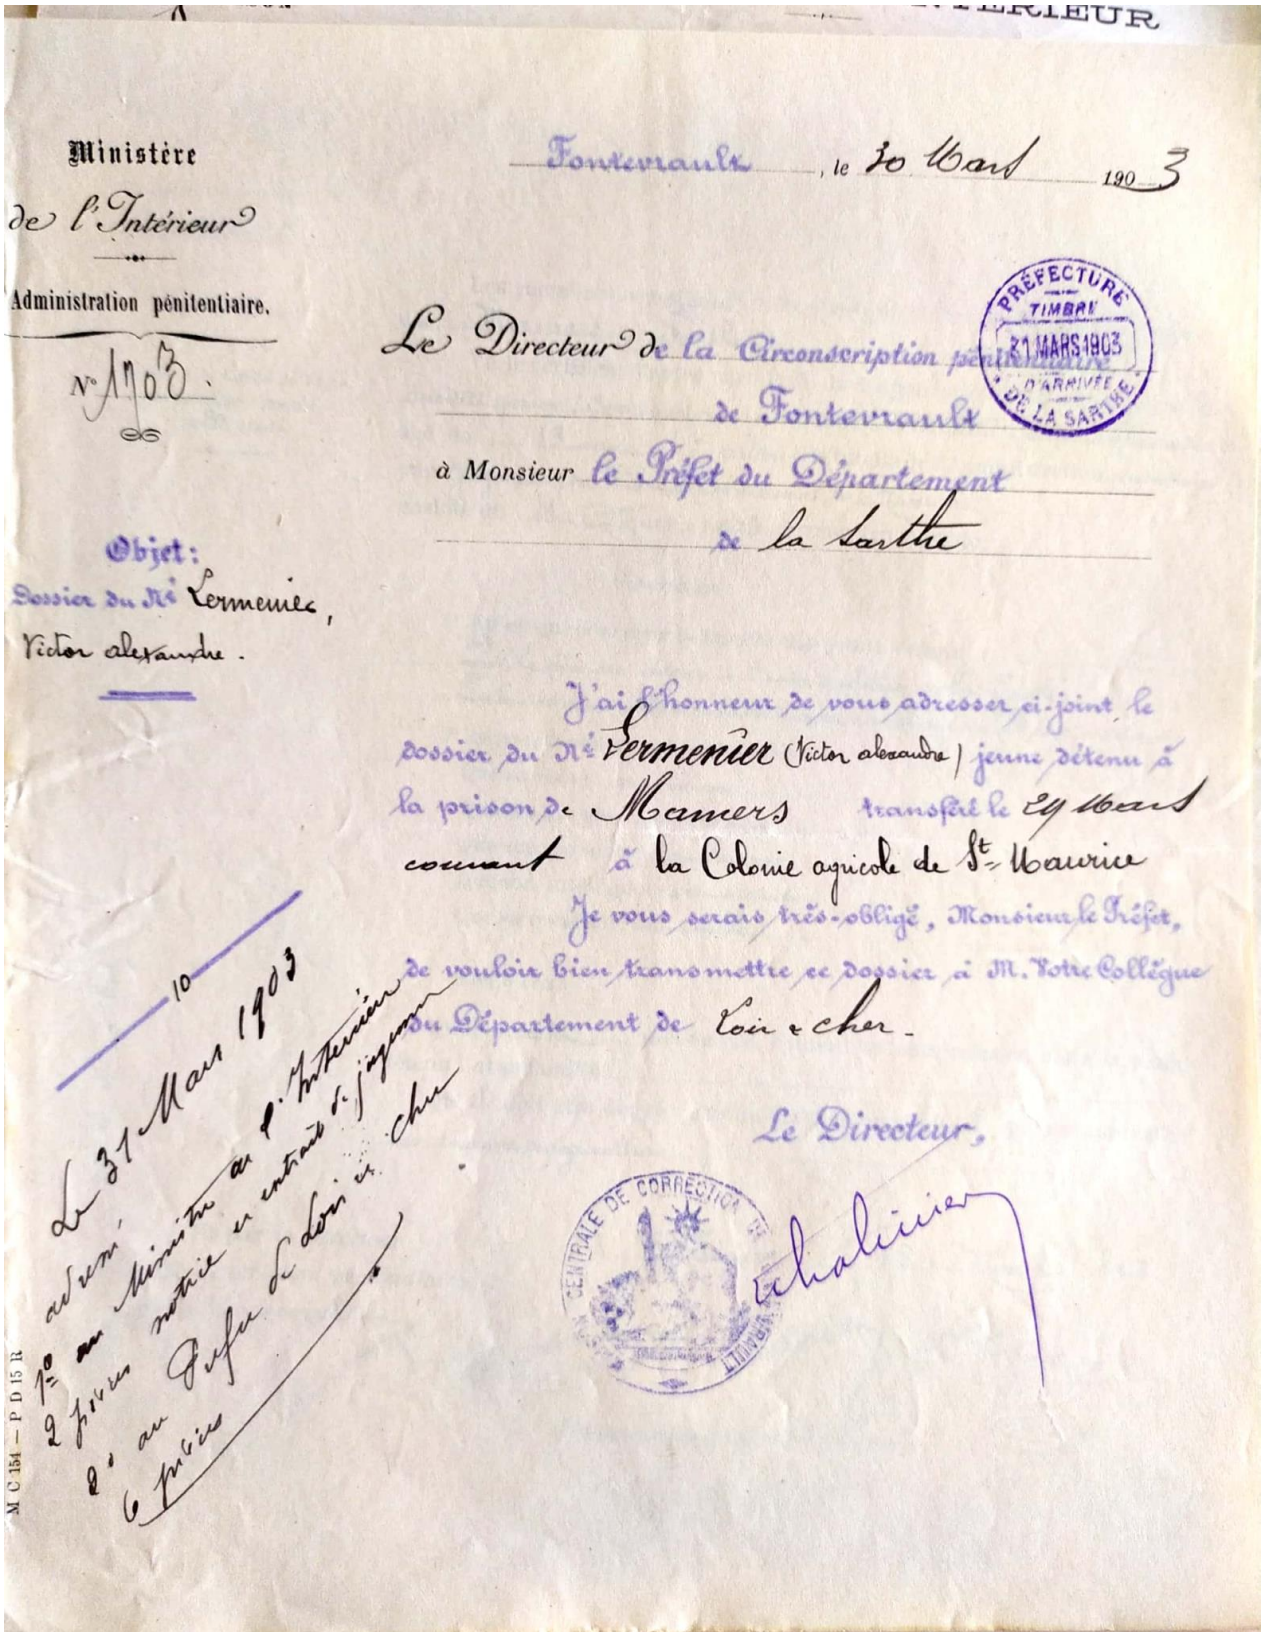 INTÉRIEUR
Ministère
de l'Intérieur
Administration pénitentiaire.
N° 1703.
Fontevrault, le 30 Mars 1903
PRÉFECTURE
TIMBRE
31 MARS 1903
D'ARRIVÉE
DE LA SARTHE
Le Directeur de la Circonscription pénitentiaire
de Fontevrault
à Monsieur le Préfet du Département
de la Sarthe
Objet:
Dossier du Né Lermenier,
Victor alexandre.
J'ai l'honneur de vous adresser ci-joint le
dossier du Né Lermenier (Victor alexandre) jeune détenu à
la prison de Mamers transféré le 29 Mars
courant à la Colonie agricole de St Maurice
Je vous serais très-obligé, Monsieur le Préfet,
de vouloir bien transmettre ce dossier à M. Votre Collègue
du Département de Loir & cher.
Le Directeur,
CENTRALE DE CORRECTION
10
Le 31 Mars 1903
adressé
1° au Ministre de l'Intérieur
2 pièces notice et extrait de jugement
2° au Préfet de Loir et cher
6 pièces
M C 154 — P D 15 R